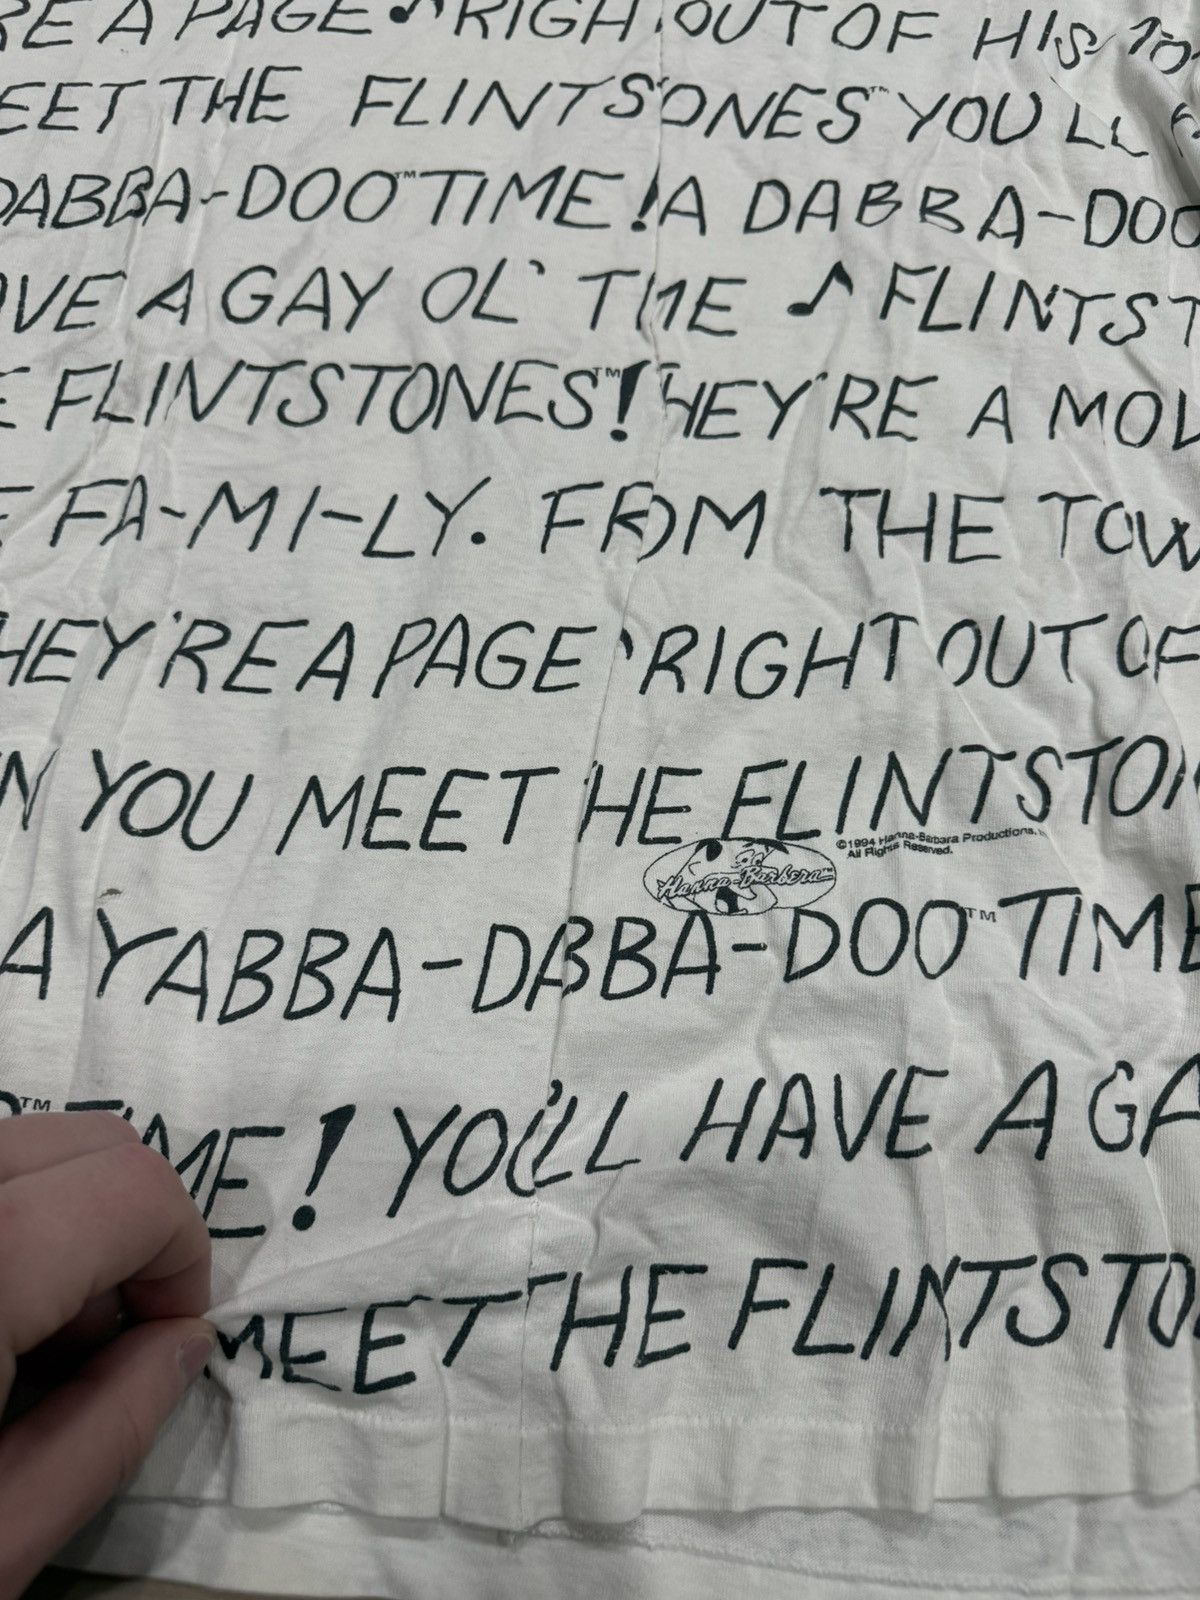 RE A PAGE ♪ RIGH OUT OF HIS TO
EET THE FLINTSONES™ YOU'LL
DABBA-DOO™ TIME! A DABBA-DOO
AVE A GAY OL' TIME ♪ FLINTST
E FLINTSTONES™! HEY'RE A MOD
E FA-MI-LY. FROM THE TOW
HEY'RE A PAGE 'RIGHT OUT OF
N YOU MEET HE FLINTSTON
©1994 Hanna-Barbara Productions,
All Rights Reserved.
Hanna-Barbera™
A YABBA-DABBA-DOO™ TIME
™ TIME! YO'LL HAVE A GA
MEET THE FLINTSTO